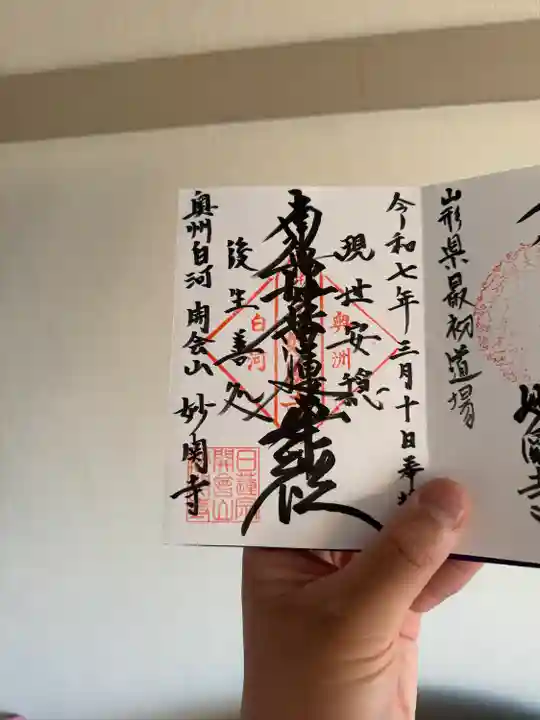 山形県最初道場
令和七年三月十日奉拝
現世安穏
南無妙法蓮華経
後生善処
奥州白河 開会山 妙関寺
奥州
白河
日蓮宗
開會山